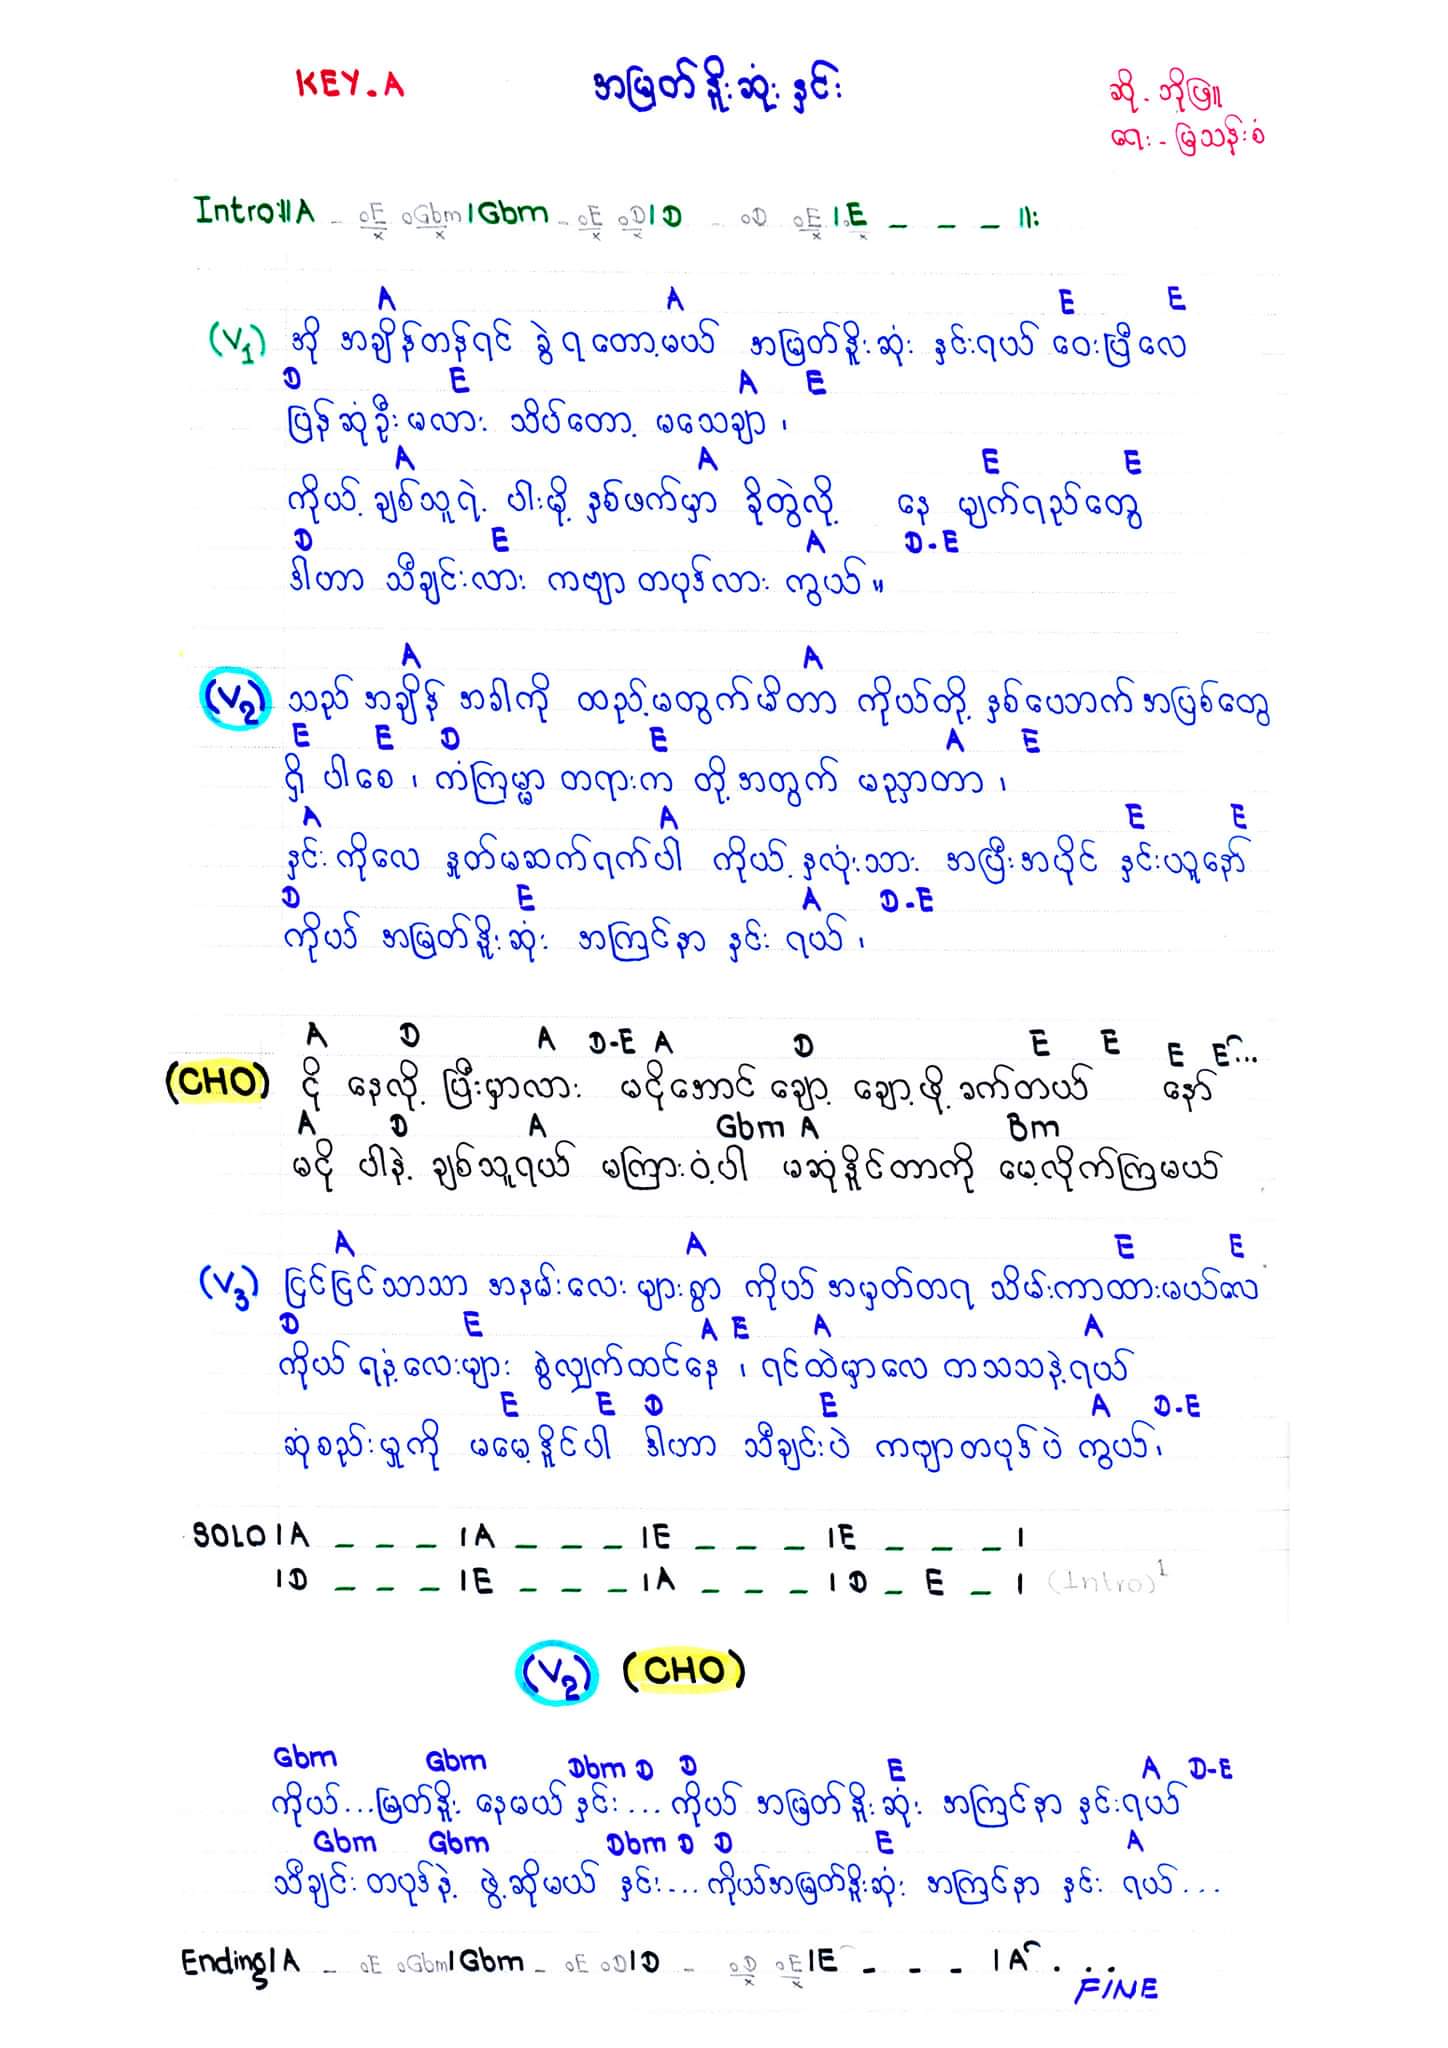 KEY.A အမြတ်နိုးဆုံးနှင်း ဆို - ဘိုဖြူ
ရေး - မြသန်းစံ
Intro:॥A _ oE oGbm | Gbm _ oE oD | D _ oD oE | E _ _ _ ॥:
A A E E
(V1) အို အချိန်တန်ရင် ခွဲ ရတော့မယ် အမြတ်နိုးဆုံး နှင်းရယ် ဝေးပြီလေ
D E A E
ပြန်ဆုံဦးမလား သိပ်တော့ မသေချာ ၊
A A E E
ကိုယ့် ချစ်သူရဲ့ ပါးမို့ နှစ်ဖက်မှာ ခိုတွဲလို့ နေ မျက်ရည်တွေ
D E A D-E
ဒါဟာ သီချင်းလား ကဗျာ တပုဒ်လား ကွယ် ။
A A
(V2) သည် အချိန် အခါကို ထည့်မတွက်မိတာ ကိုယ်တို့ နှစ်ပေဘက် အဖြစ်တွေ
E E D E A E
ရှိ ပါစေ ၊ ကံကြမ္မာ တရားက တို့အတွက် မညှာတာ ၊
A A E E
နှင်း ကိုလေ နှုတ်မဆက်ရက်ပါ ကိုယ့် နှလုံးသား အပြီးအပိုင် နှင်းယူနော်
D E A D-E
ကိုယ် အမြတ်နိုးဆုံး အကြင်နာ နှင်း ရယ် ၊
A D A D-E A D E E E E...
(CHO) ငို နေလို့ ပြီးမှာလား မငိုအောင် ချော့ ချော့ဖို့ ခက်တယ် နော်
A D A Gbm A Bm
မငို ပါနဲ့ ချစ်သူရယ် မကြားဝံ့ပါ မဆုံနိုင်တာကို မေ့လိုက်ကြမယ်
A A E E
(V3) ငြင်ငြင်သာသာ အနမ်းလေး များစွာ ကိုယ် အမှတ်တရ သိမ်းကာထားမယ်လေ
D E A E A A
ကိုယ် ရနံ့လေးများ စွဲလျှက်ထင်နေ ၊ ရင်ထဲမှာလေ တသသနဲ့ရယ်
E E D E A D-E
ဆုံစည်းမှုကို မမေ့နိုင်ပါ ဒါဟာ သီချင်းပဲ ကဗျာတပုဒ်ပဲ ကွယ်၊
SOLO | A _ _ _ | A _ _ _ | E _ _ _ | E _ _ _ |
| D _ _ _ | E _ _ _ | A _ _ _ | D _ E _ | (Intro)1
(V2) (CHO)
Gbm Gbm Dbm D D E A D-E
ကိုယ်...မြတ်နိုး နေမယ် နှင်း... ကိုယ် အမြတ်နိုးဆုံး အကြင်နာ နှင်းရယ်
Gbm Gbm Dbm D D E A
သီချင်း တပုဒ်နဲ့ ဖွဲ့ဆိုမယ် နှင်း... ကိုယ်အမြတ်နိုးဆုံး အကြင်နာ နှင်း ရယ်...
Ending | A _ oE oGbm | Gbm _ oE oD | D _ oD oE | E _ _ _ | A...
FINE